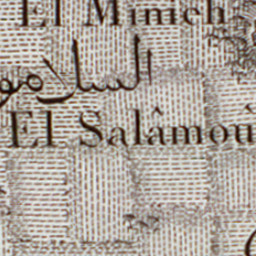 El Minieh
السلامو
El Salâmoù